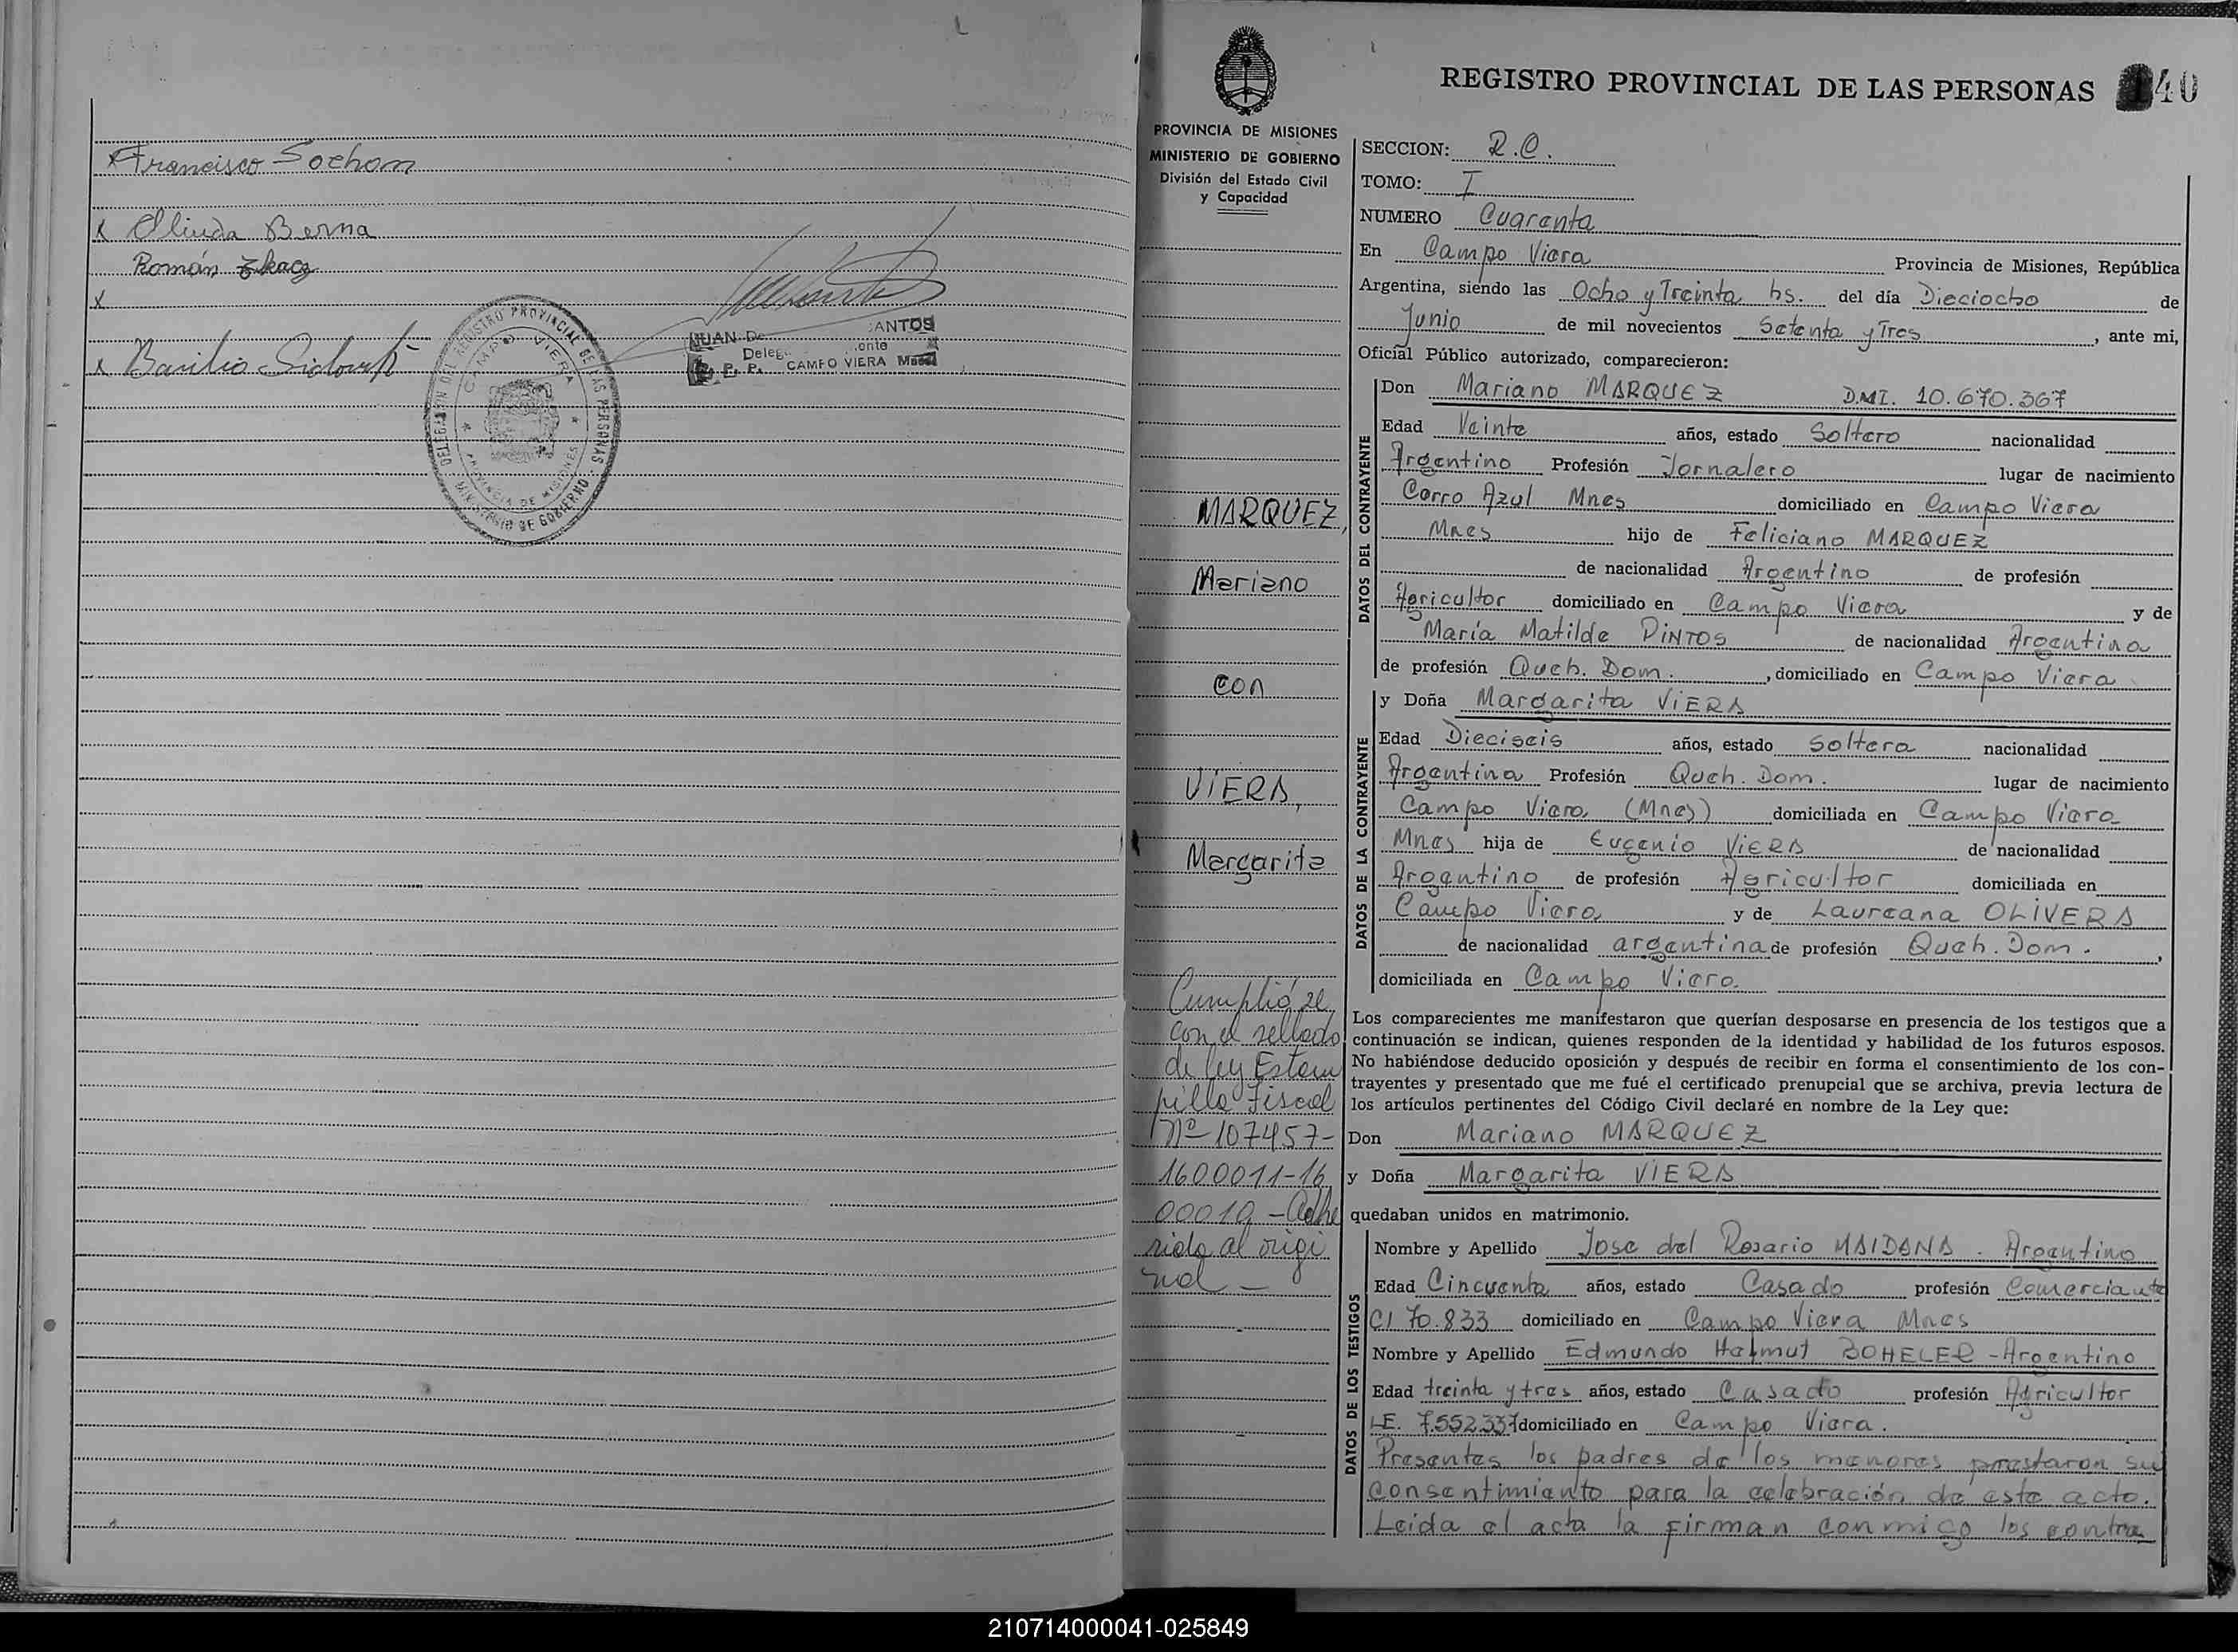 Francisco Sochom
x Olinda Berna
Román Zkacz
x
x Basilio
DELEGACION DEL REGISTRO PROVINCIAL DE LAS PERSONAS
MINISTERIO DE GOBIERNO
CAMPO VIERA
PROVINCIA DE MISIONES
JUAN De ANTOS
Deleg ente
R. P. P. CAMPO VIERA Mnes
PROVINCIA DE MISIONES
MINISTERIO DE GOBIERNO
División del Estado Civil
y Capacidad
MARQUEZ,
Mariano
con
VIERA,
Margarita
Cumplió se
con el sellado
de ley Estam
pilla fiscal
Nº 107457-
1600011-16
00010 - Adhe
rido al origi
nal -
REGISTRO PROVINCIAL DE LAS PERSONAS 40
SECCION: R.C.
TOMO: I
NUMERO Cuarenta
En Campo Viera Provincia de Misiones, República
Argentina, siendo las Ocho y Treinta hs. del día Dieciocho de
Junio de mil novecientos Setenta y Tres, ante mi,
Oficial Público autorizado, comparecieron:
DATOS DEL CONTRAYENTE
Don Mariano MARQUEZ D.M.I. 10.670.367
Edad Veinte años, estado Soltero nacionalidad
Argentino Profesión Jornalero lugar de nacimiento
Cerro Azul Mnes domiciliado en Campo Viera
Mnes hijo de Feliciano MARQUEZ
de nacionalidad Argentino de profesión
Agricultor domiciliado en Campo Viera y de
María Matilde PINTOS de nacionalidad Argentina
de profesión Queh. Dom., domiciliado en Campo Viera
DATOS DE LA CONTRAYENTE
y Doña Margarita VIERA
Edad Dieciseis años, estado Soltera nacionalidad
Argentina Profesión Queh. Dom. lugar de nacimiento
Campo Viera (Mnes) domiciliada en Campo Viera
Mnes hija de Eugenio VIERA de nacionalidad
Argentino de profesión Agricultor domiciliada en
Campo Viera y de Laureana OLIVERA
de nacionalidad argentina de profesión Queh. Dom.,
domiciliada en Campo Viera
Los comparecientes me manifestaron que querían desposarse en presencia de los testigos que a
continuación se indican, quienes responden de la identidad y habilidad de los futuros esposos.
No habiéndose deducido oposición y después de recibir en forma el consentimiento de los con-
trayentes y presentado que me fué el certificado prenupcial que se archiva, previa lectura de
los artículos pertinentes del Código Civil declaré en nombre de la Ley que:
Don Mariano MARQUEZ
y Doña Margarita VIERA
quedaban unidos en matrimonio.
DATOS DE LOS TESTIGOS
Nombre y Apellido Jose del Rosario MAIDANA - Argentino
Edad Cincuenta años, estado Casado profesión Comerciante
CI 70.833 domiciliado en Campo Viera Mnes
Nombre y Apellido Edmundo Helmut BOHELER - Argentino
Edad treinta y tres años, estado Casado profesión Agricultor
L.E. 7.552.337 domiciliado en Campo Viera.
Presentes los padres de los menores prestaron su
consentimiento para la celebración de este acto.
Leida el acta la firman conmigo los contra
210714000041-025849